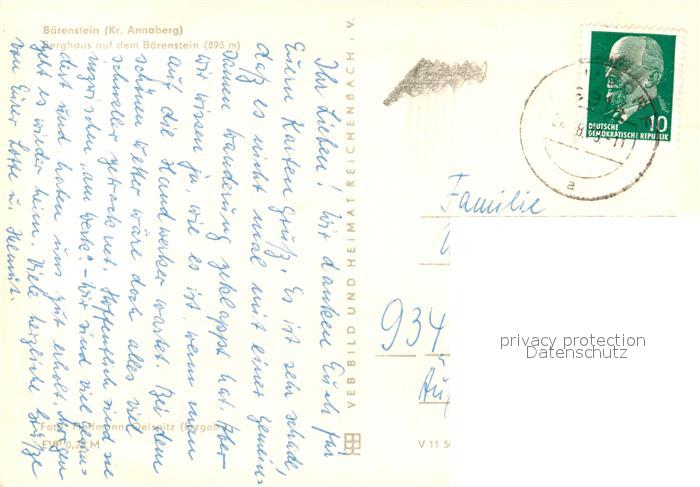 Bärenstein (Kr. Annaberg)
Berghaus auf dem Bärenstein (898 m)
Ihr Lieben! Wir danken Euch für
Euern Kartengruß. Es ist sehr schade,
daß es nicht mal mit einer gemein-
samen Wanderung geklappt hat. Aber
wir wissen ja, wie es ist, wenn man
auf die Handwerker wartet. Bei dem
schönen Wetter wäre doch alles viel
schneller getrocknet. Hoffentlich sind sie
inzwischen "am Werk". Wir sind viel gewan-
dert und haben uns gut erholt. Morgen
geht es wieder heim. Viele herzliche Grüße
von Eurer Lotte u. Helmut.
Foto: Hoffmann, Oelsnitz (Erzgeb.)
EVP 0,20 M
VEB BILD UND HEIMAT REICHENBACH i. V.
V 11 50
DEUTSCHE
DEMOKRATISCHE REPUBLIK
10
a
Familie
934
privacy protection
Datenschutz